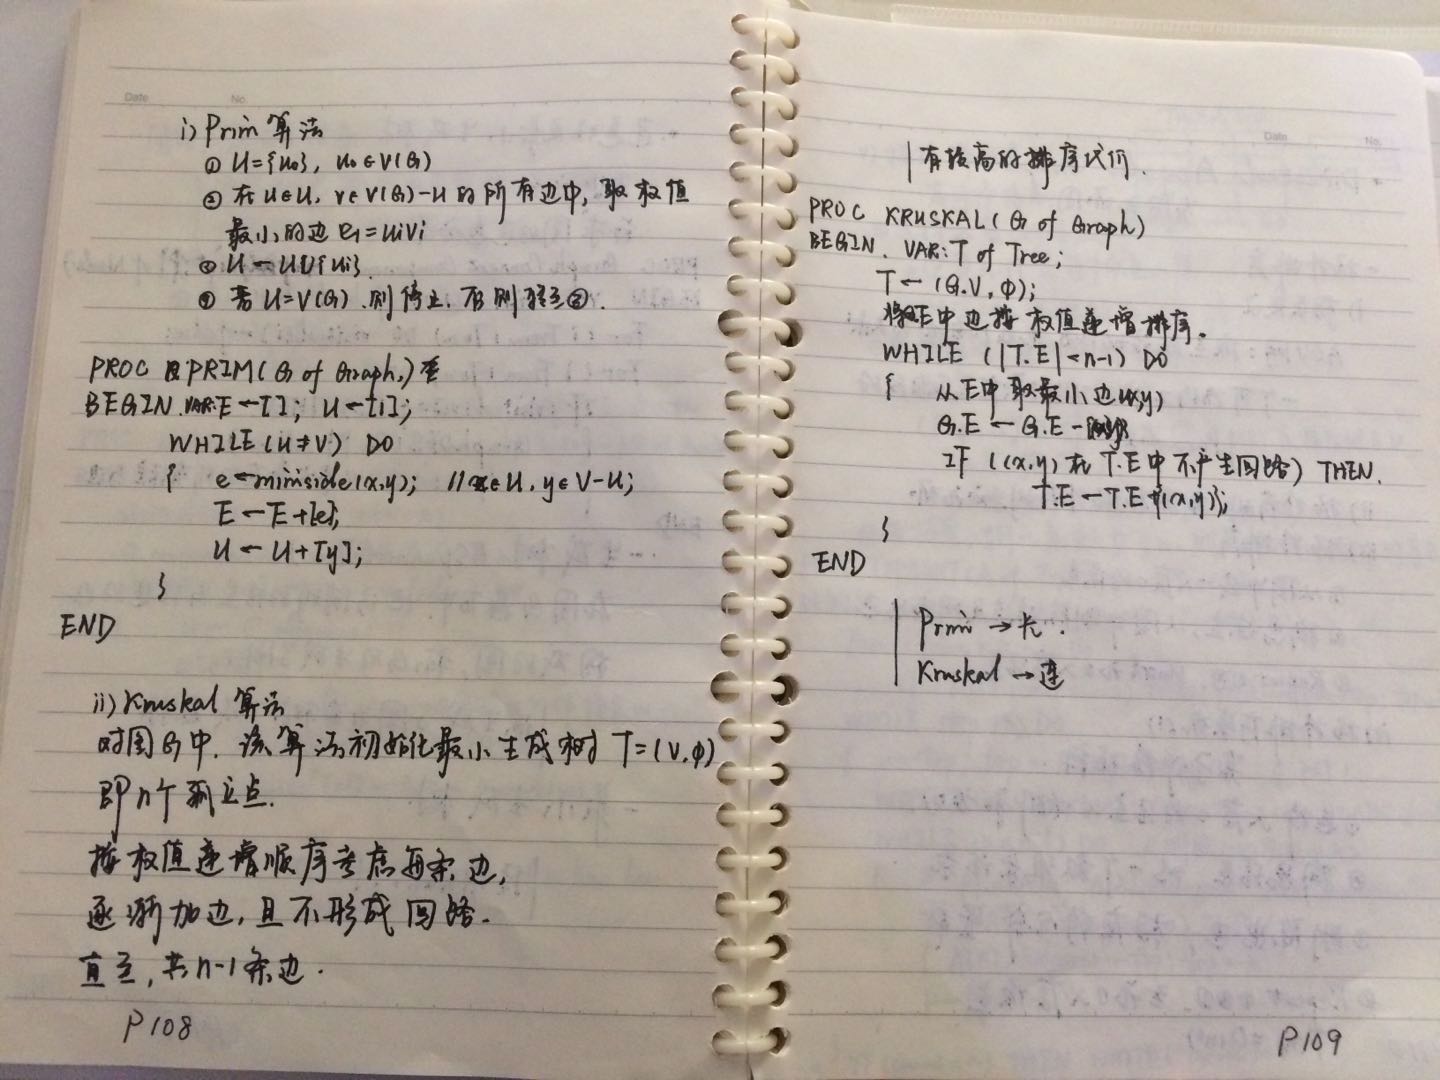 Date No.
i) Prim 算法
① U={u₀}, u₀∈V(G)
② 在 u∈U, v∈V(G)-U 的所有边中, 取权值
最小的边 e₁=uᵢvᵢ
③ U←U∪{uᵢ}
④ 若 U=V(G) ,则停止, 否则 ②.
PROC PRIM( G of Graph,)
BEGIN. VAR: E←[]; U←[1];
WHILE(U≠V) DO
{ e←minside(x,y); //x∈U, y∈V-U;
E←E+[e];
U←U+[y];
}
END
ii) Kruskal 算法
对图G中, 该算法初始化最小生成树 T=(V,φ)
即n个孤立点.
按权值递增顺序考虑每条边,
逐渐加边, 且不形成回路.
直至, 共n-1条边.
P108
Date No.
有较高的排序代价.
PROC KRUSKAL( G of Graph)
BEGIN. VAR: T of Tree;
T←(G.V, φ);
将E中边按权值递增排序.
WHILE (|T.E|<n-1) DO
{ 从E中取最小边(x,y)
G.E←G.E-
IF ((x,y)在T.E中不产生回路) THEN.
T.E←T.E+{(x,y)};
}
END
Prim → 长.
Kruskal → 连
P109